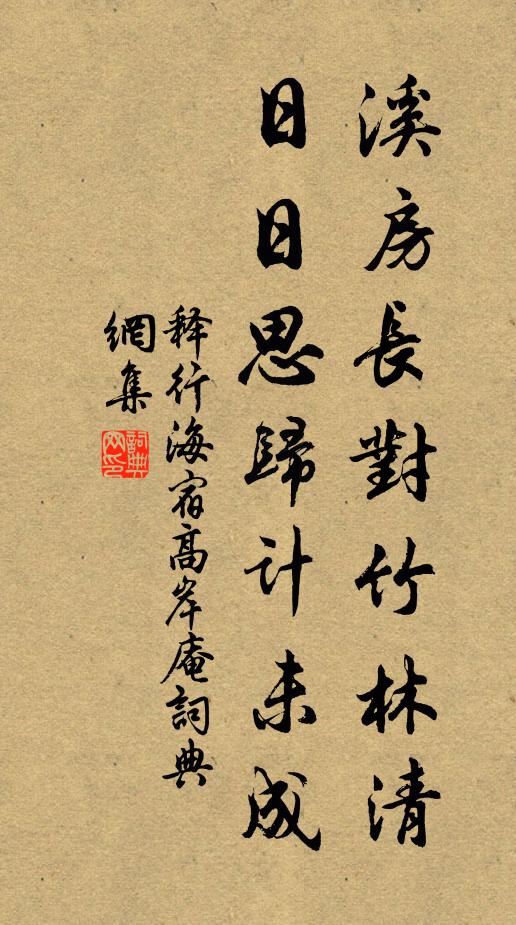 溪房長對竹林清
日日思歸计未成
释行海宿高岸庵詞典
網集
詞典
网印